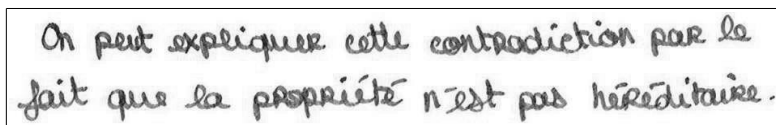 On peut expliquer cette contradiction par le
fait que la propriété n'est pas héréditaire.